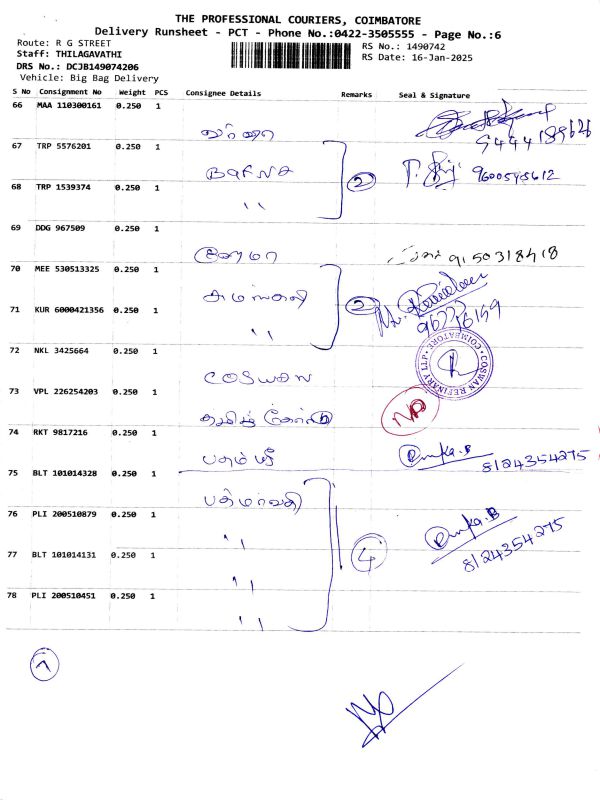 THE PROFESSIONAL COURIERS, COIMBATORE
Delivery Runsheet - PCT - Phone No.:0422-3505555 - Page No.:6
Route: R G STREET
RS No.: 1490742
Staff: THILAGAVATHI
RS Date: 16-Jan-2025
DRS No.: DCJB149074206
Vehicle: Big Bag Delivery
S No Consignment No Weight PCS Consignee Details Remarks Seal & Signature
66 MAA 110300161 0.250 1
9444189626
67 TRP 5576201 0.250 1
2 9600545612
68 TRP 1539374 0.250 1
"
69 DDG 967509 0.250 1
9150318418
70 MEE 530513325 0.250 1
2
71 KUR 6000421356 0.250 1
"
72 NKL 3425664 0.250 1
COSWAN
COSWAN REFINARY LLP
COIMBATORE
73 VPL 226254203 0.250 1
74 RKT 9817216 0.250 1
பதம் ஸ்ரீ
8124354275
75 BLT 101014328 0.250 1
பத்மாவதி
76 PLI 200510879 0.250 1
" 4
8124354275
77 BLT 101014131 0.250 1
"
78 PLI 200510451 0.250 1
"
7